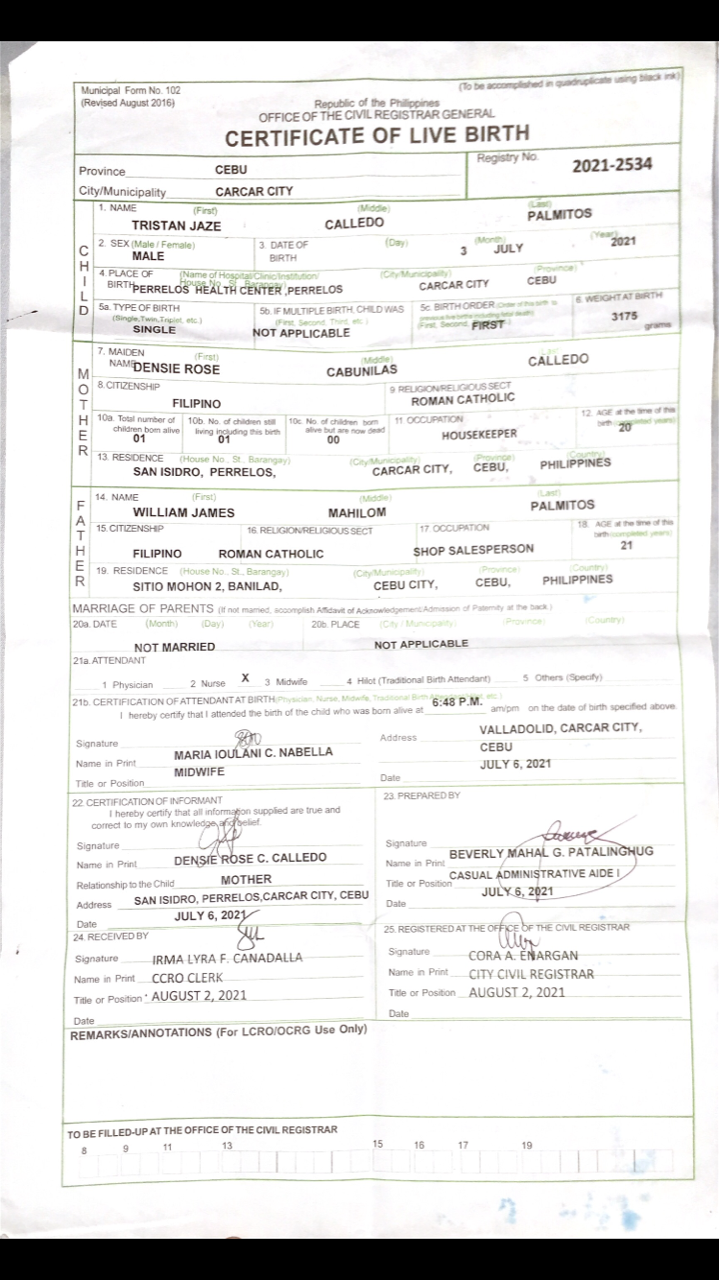 Municipal Form No. 102
(Revised August 2016)
(To be accomplished in quadruplicate using black ink)
Republic of the Philippines
OFFICE OF THE CIVIL REGISTRAR GENERAL
CERTIFICATE OF LIVE BIRTH
Province CEBU
Registry No. 2021-2534
City/Municipality CARCAR CITY
CHILD
1. NAME (First) (Middle) (Last)
TRISTAN JAZE CALLEDO PALMITOS
2. SEX (Male / Female) 3. DATE OF BIRTH (Day) (Month) (Year)
MALE 3 JULY 2021
4. PLACE OF BIRTH (Name of Hospital/Clinic/Institution/ House No., St., Barangay) (City/Municipality) (Province)
PERRELOS HEALTH CENTER ,PERRELOS CARCAR CITY CEBU
5a. TYPE OF BIRTH (Single,Twin,Triplet, etc.) 5b. IF MULTIPLE BIRTH, CHILD WAS (First, Second, Third, etc.) 5c. BIRTH ORDER (Order of this birth to previous live births including fetal death) (First, Second, 6. WEIGHT AT BIRTH
SINGLE NOT APPLICABLE FIRST 3175 grams
MOTHER
7. MAIDEN NAME (First) (Middle) (Last)
DENSIE ROSE CABUNILAS CALLEDO
8. CITIZENSHIP 9 RELIGION/RELIGIOUS SECT
FILIPINO ROMAN CATHOLIC
10a. Total number of children born alive 10b. No. of children still living including this birth 10c. No. of children born alive but are now dead 11 OCCUPATION 12. AGE at the time of this birth (completed years)
01 01 00 HOUSEKEEPER 20
13. RESIDENCE (House No., St., Barangay) (City/Municipality) (Province) (Country)
SAN ISIDRO, PERRELOS, CARCAR CITY, CEBU, PHILIPPINES
FATHER
14. NAME (First) (Middle) (Last)
WILLIAM JAMES MAHILOM PALMITOS
15. CITIZENSHIP 16. RELIGION/RELIGIOUS SECT 17. OCCUPATION 18. AGE at the time of this birth (completed years)
FILIPINO ROMAN CATHOLIC SHOP SALESPERSON 21
19. RESIDENCE (House No., St., Barangay) (City/Municipality) (Province) (Country)
SITIO MOHON 2, BANILAD, CEBU CITY, CEBU, PHILIPPINES
MARRIAGE OF PARENTS (If not married, accomplish Affidavit of Acknowledgement/Admission of Paternity at the back.)
20a. DATE (Month) (Day) (Year) 20b. PLACE (City / Municipality) (Province) (Country)
NOT MARRIED NOT APPLICABLE
21a. ATTENDANT
1 Physician 2 Nurse X 3 Midwife 4 Hilot (Traditional Birth Attendant) 5 Others (Specify)
21b. CERTIFICATION OF ATTENDANT AT BIRTH (Physician, Nurse, Midwife, Traditional Birth Attendant/Hilot, etc.)
I hereby certify that I attended the birth of the child who was born alive at 6:48 P.M. am/pm on the date of birth specified above.
Signature
Name in Print MARIA IOULANI C. NABELLA
Title or Position MIDWIFE
Address VALLADOLID, CARCAR CITY,
CEBU
Date JULY 6, 2021
22. CERTIFICATION OF INFORMANT
I hereby certify that all information supplied are true and
correct to my own knowledge and belief.
Signature
Name in Print DENSIE ROSE C. CALLEDO
Relationship to the Child MOTHER
Address SAN ISIDRO, PERRELOS,CARCAR CITY, CEBU
Date JULY 6, 2021
23. PREPARED BY
Signature
Name in Print BEVERLY MAHAL G. PATALINGHUG
Title or Position CASUAL ADMINISTRATIVE AIDE I
Date JULY 6, 2021
24. RECEIVED BY
Signature IRMA LYRA F. CANADALLA
Name in Print CCRO CLERK
Title or Position AUGUST 2, 2021
Date
25. REGISTERED AT THE OFFICE OF THE CIVIL REGISTRAR
Signature CORA A. ENARGAN
Name in Print CITY CIVIL REGISTRAR
Title or Position AUGUST 2, 2021
Date
REMARKS/ANNOTATIONS (For LCRO/OCRG Use Only)
TO BE FILLED-UP AT THE OFFICE OF THE CIVIL REGISTRAR
8 9 11 13 15 16 17 19